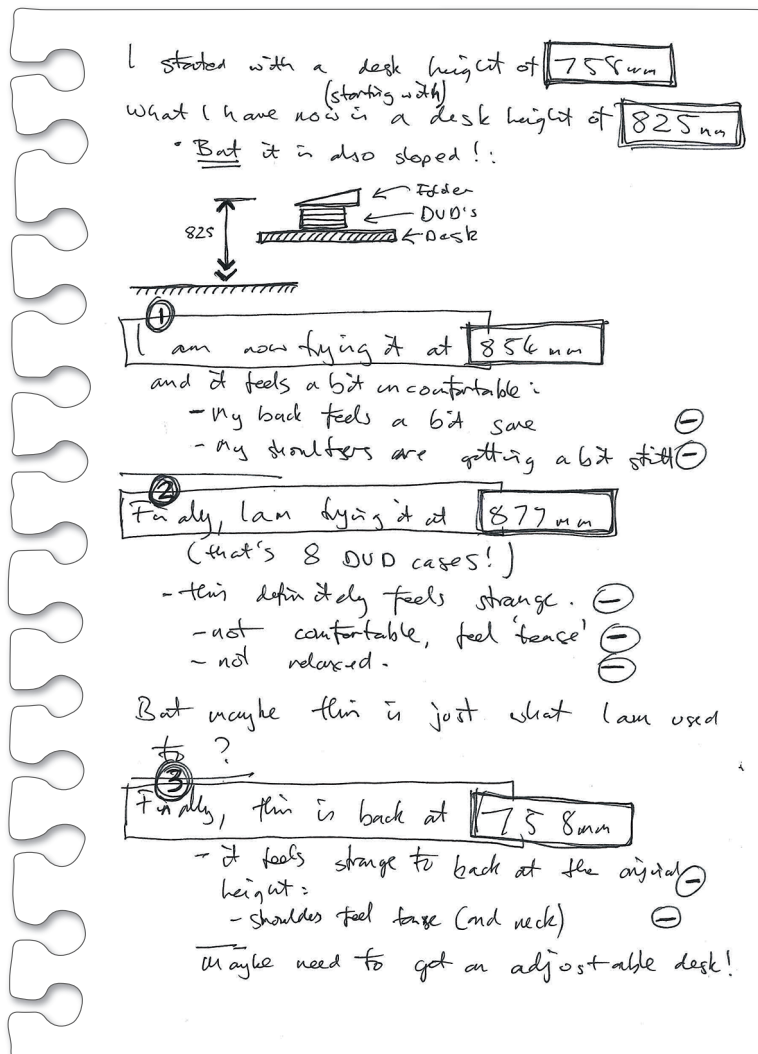 I started with a desk height of 758mm
(starting with)
What I have now is a desk height of 825mm
• But it is also sloped!:
Folder
DVD's
825
Desk
1
I am now trying it at 854mm
and it feels a bit uncomfortable:
- my back feels a bit sore -
- my shoulders are getting a bit stiff -
2
Finally, I am trying it at 877mm
(that's 8 DVD cases!)
- this definitely feels strange. -
- not comfortable, feel 'tense' -
- not relaxed. -
But maybe this is just what I am used
to?
3
Finally, this is back at 758mm
- it feels strange to back at the original -
height:
- shoulders feel tense (and neck) -
Maybe need to get an adjustable desk!